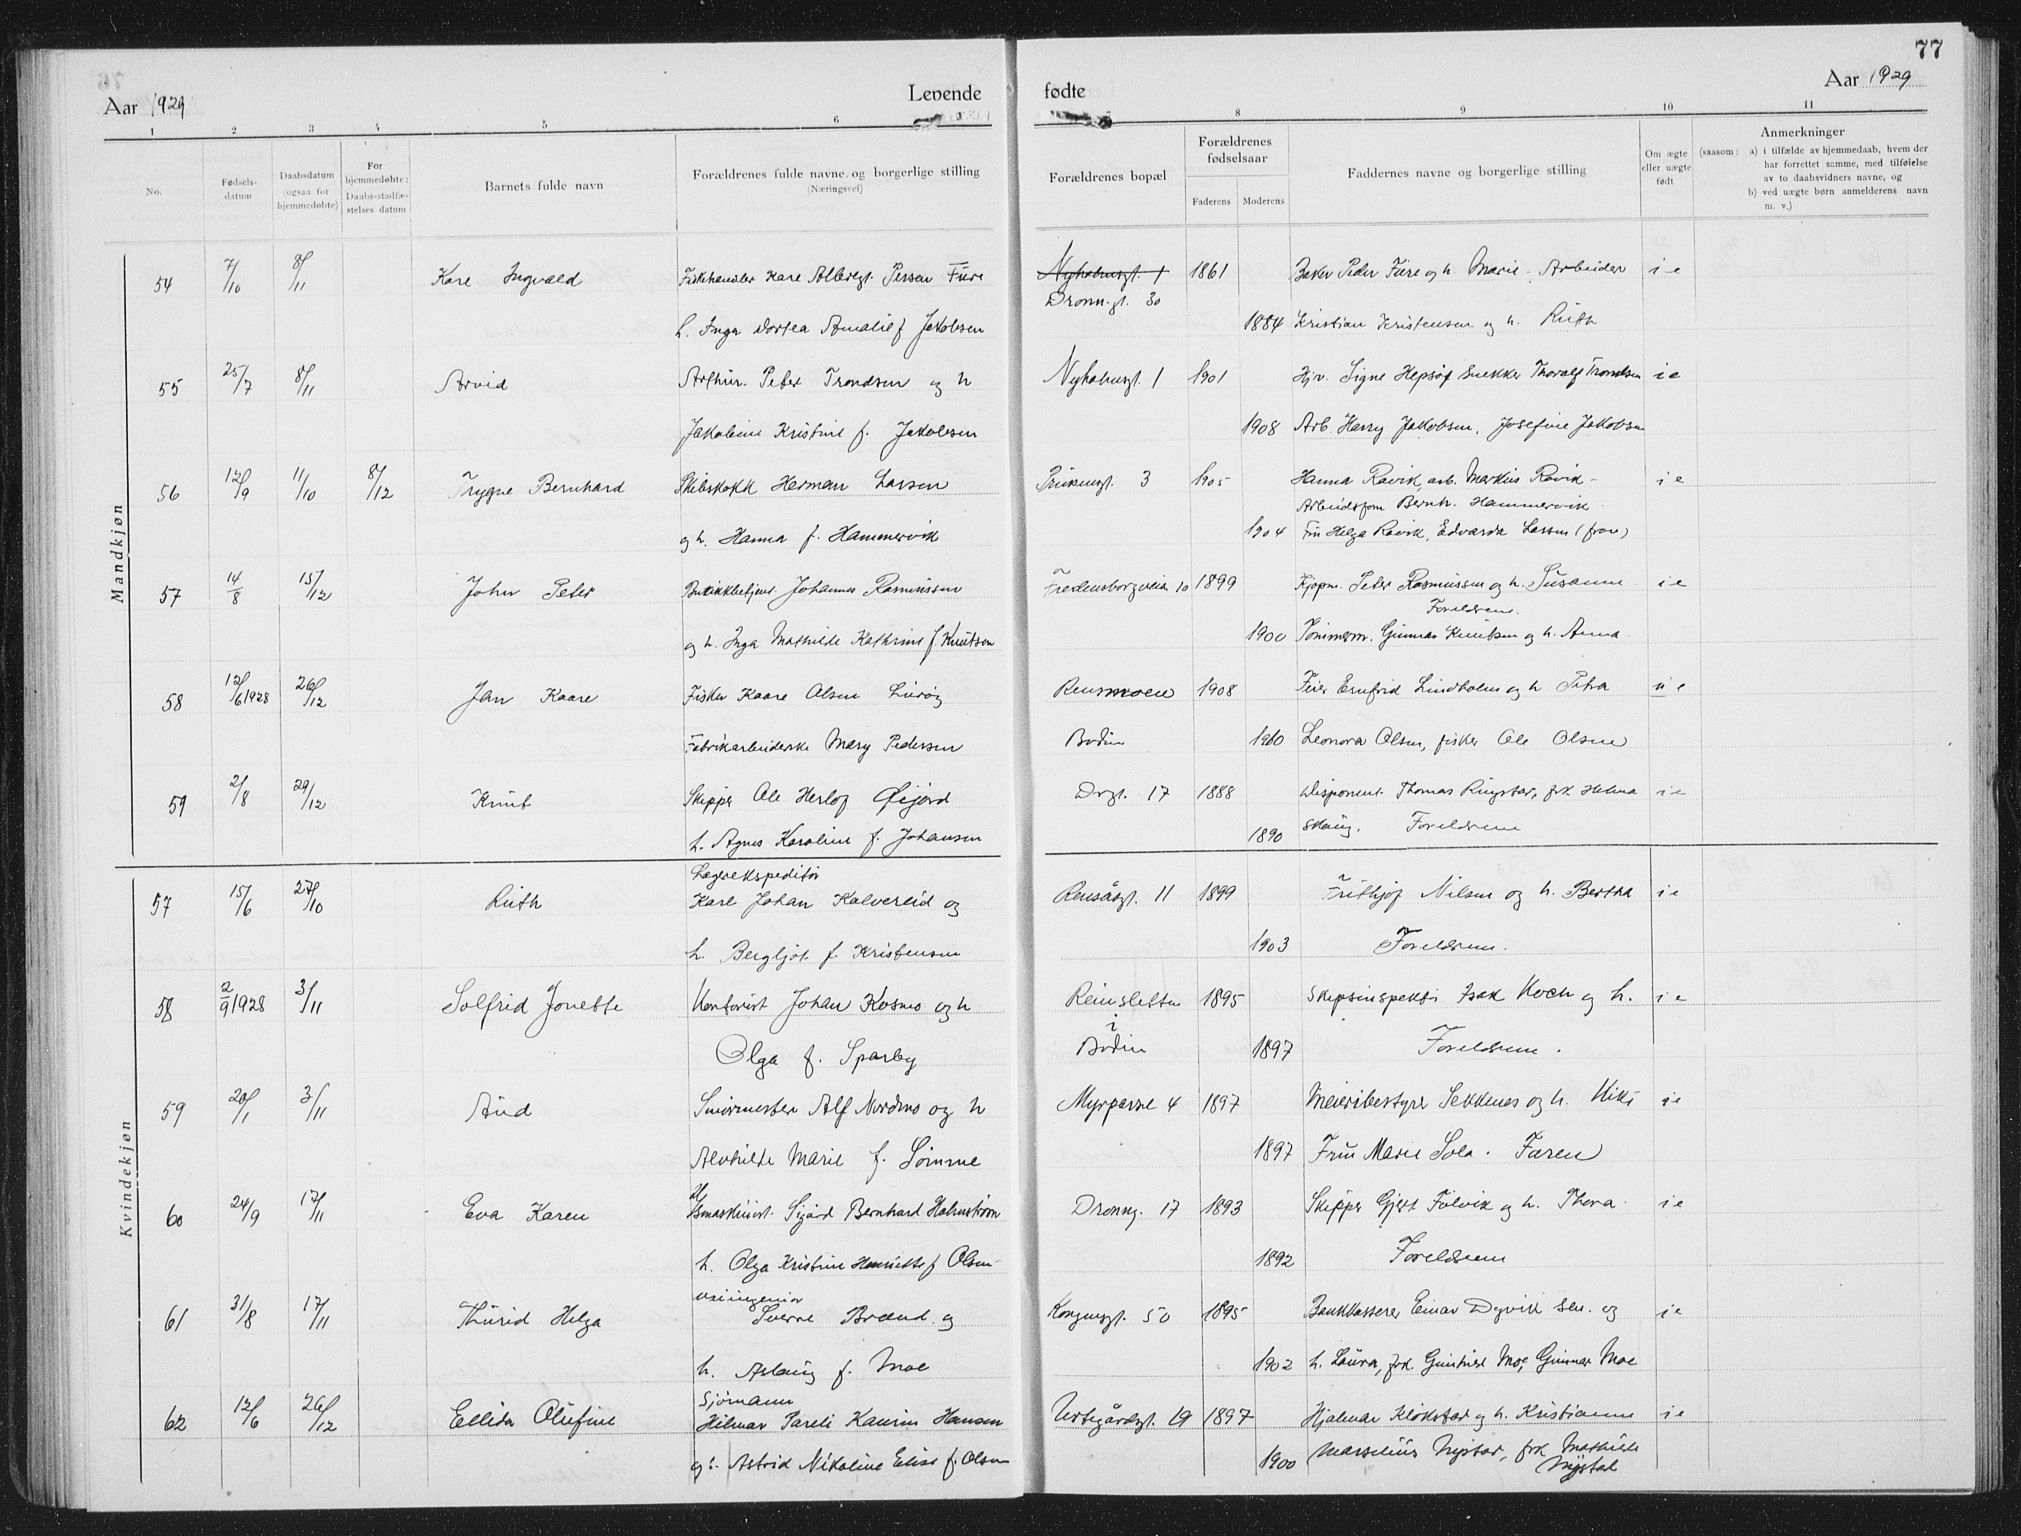 77
Aar 1929
Levende
fødte
Aar 1929
1 2 3 4 5 6
8 9 10 11
No.
Fødsels-datum
Daabsdatum (ogsaa for hjemmedøbte)
For hjemmedøbte: Daabs-stadfæstelses datum
Barnets fulde navn
Forældrenes fulde navne og borgerlige stilling
(Næringsvei)
Forældrenes bopæl
Forældrenes fødselsaar
Faderens
Moderens
Faddernes navne og borgerlige stilling
Om ægte eller uægte født
Anmerkninger
(saasom: a) i tilfælde av hjemmedaab, hvem der
har forrettet samme, med tilføielse
av to daabsvidners navne, og
b) ved uægte børn anmelderens navn
m. v.)
Mandkjøn
54 7/10 8/11 Kare Ingvald Fiskehandler Kare Persen Fure Nyholmsgt. 1 1861 Baker Peder Fure og h. Marie. Arbeider i e
Dronn.gt. 30
h. Inga Dortea Amalie f Jakobsen 1884 Kristian Kristensen og h. Ruth
55 25/7 8/11 Arvid Arthur Peter Trondsen og h Nyholmsgt. 1 1901 Hjv. Signe Hepsøf Snekker Thoralf Trondsen i e
Jakobine Kristine f. Jakobsen 1908 Arb. Harry Jakobsen, Josefine Jakobsen
56 12/9 11/10 8/12 Trygve Bernhard Skibskokk Herman Larsen Prinsensgt. 3 1905 Hanna Ravik, arb. Markus Ravik - i e
Bernh. Hammervik
og h. Hanna f. Hammervik 1904 Fru Helga Ravik, Edvarda Larsen
57 14/8 15/12 John Peter Butikkbetjent Johannes Rasmussen Fredensborgveien 10 1899 Kjøpm. Peter Rasmussen og h. Susanne i e
Foreldrene.
og h. Inga Mathilde Kathrine f. Knutsen 1900 Tømmerm. Gunnar Knutsen og h. Anna.
58 12/6 1928 26/12 Jan Kaare Fisker Kaare Olsen Lurøy Rensmoen 1908 Feier Ernfrid Lindholm og h Petra u e
Fabrikarbeiderske Mary Pedersen Bodin 1910 Leonora Olsen, fisker Ole Olsen
59 2/8 29/12 Knut Skipper Ole Herlof Øijord Drgt. 17 1888 Disponent Thomas Ringstad, frk Helma i e
h. Agnes Karoline f. Johansen 1890 Skaug. Foreldrene
Kvindekjøn
Lagerekspeditør
57 15/6 27/10 Ruth Karl Johan Kalvereid og Rensåsgt. 11 1899 Frithjof Nilsen og h. Bertha i e
h. Bergljot f. Kristensen 1903 Foreldrene.
58 2/9 1928 3/11 Solfrid Jonette Kontorist Johan Kosmo og h Reinsletten 1895 Skipsinspektør Isak Koch og h. i e
i
Olga f. Sparby Bodin 1897 Foreldrene.
59 20/1 3/11 Aud Smørmester Alf Nordmo og h Myrveien 4 1897 Meieribestyrer Sekkenes og h. i e
Alvhilde Marie f. Sømme 1897 Fru Marie Sola. Faren
60 24/9 17/11 Eva Karen Sigurd Bernhard Holmstrøm Dronng. 17 1893 Skipper Gjert Falvik og h. Thora i e
h. Olga Kristine Henriette f Olsen 1892 Foreldrene
61 31/8 17/11 Thurid Helga Sverre Brænd og Kongensgt. 50 1895 Bankkasserer Einar Dyvik sen. og i e
h. Aslaug f. Moe 1902 h. Laura, frk. Moe, Gunnar Moe
Sjømann
62 12/6 26/12 Ellida Olufine Hilmar Pareli Kaurin Hansen Urtegårdsgt. 19 1897 Hjalmar Klokstad og h. Kristianne i e
og h. Astrid Nikoline Elise f. Olsen 1900 Marselius Nystad, frk Mathilde
Nystad